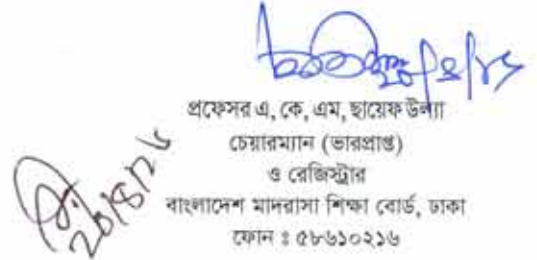 প্রফেসর এ, কে, এম, ছায়েফ উল্যা
চেয়ারম্যান (ভারপ্রাপ্ত)
ও রেজিস্ট্রার
বাংলাদেশ মাদরাসা শিক্ষা বোর্ড, ঢাকা
ফোন ঃ ৫৮৬১০২১৬